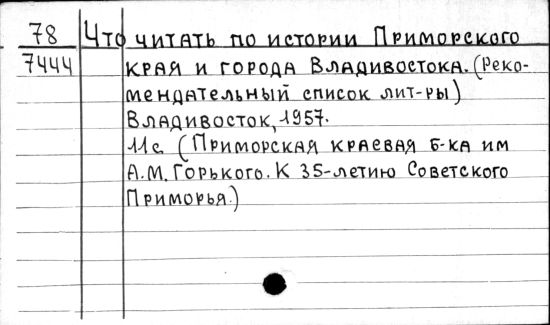 78 Что читать по истории Приморского
7444 края и города Владивостока. (Реко-
мендательный список лит-ры)
Владивосток, 1957.
11с. (Приморская краевая б-ка им
А.М. Горького. К 35-летию Советского
Приморья.)